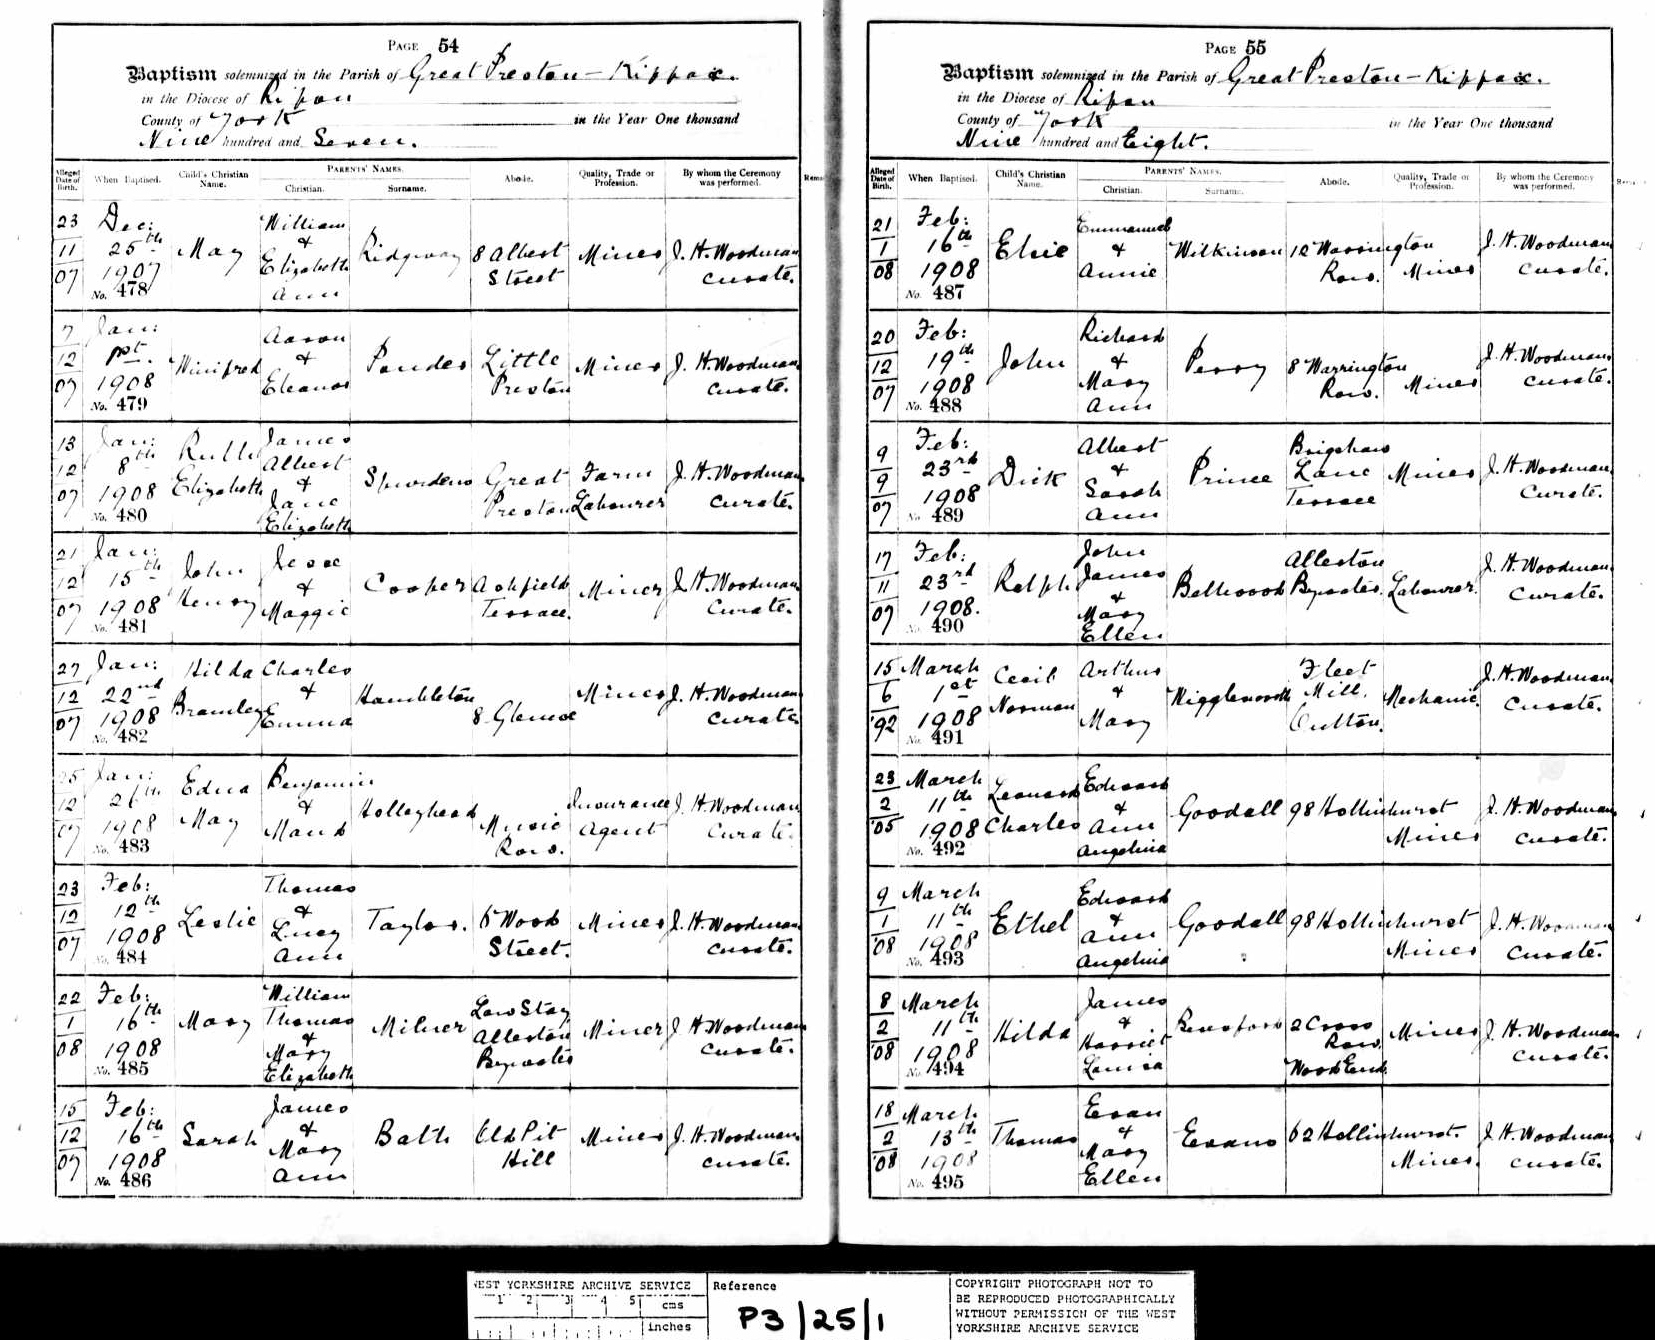 PAGE 54
Baptism solemnized in the Parish of Great Preston - Kippax.
in the Diocese of Ripon
County of York in the Year One thousand
Nine hundred and Seven.
Alleged Date of Birth. When Baptised. Child's Christian Name. PARENTS' NAMES. Christian. Surname. Abode. Quality, Trade or Profession. By whom the Ceremony was performed.
23 11 07 Dec: 25th 1907 No. 478 May William & Elizabeth Ann Ridgway 8 Albert Street Miner J. H. Woodman Curate.
7 12 07 Jan: 1st. 1908 No. 479 Winifred Aaron & Eleanor Ponder Little Preston Miner J. H. Woodman Curate.
13 12 07 Jan: 8th 1908 No. 480 Ruth Elizabeth James Albert & Jane Elizabeth Spurdens Great Preston Farm Labourer J. H. Woodman Curate.
21 12 07 Jan: 15th 1908 No. 481 John Henry Jesse & Maggie Cooper Ashfield Terrace. Miner J. H. Woodman Curate.
27 12 07 Jan: 22nd 1908 No. 482 Hilda Bramley Charles & Emma Hambleton 8 Miner J. H. Woodman Curate
25 12 07 Jan: 26th 1908 No. 483 Edna May Benjamin & Maud Holleyhead Music Row. Insurance Agent J. H. Woodman Curate.
23 12 07 Feb: 12th 1908 No. 484 Leslie Thomas & Lucy Ann Taylor. Wood Street. Miner J. H. Woodman Curate.
22 1 08 Feb: 16th 1908 No. 485 Mary William Thomas & Mary Elizabeth Milner Low Stay Allerton Bywater Miner J. H. Woodman Curate.
15 12 07 Feb: 16th 1908 No. 486 Sarah James & Mary Ann Bath Old Pit Hill Miner J. H. Woodman Curate.
PAGE 55
Baptism solemnized in the Parish of Great Preston - Kippax.
in the Diocese of Ripon
County of York in the Year One thousand
Nine hundred and Eight.
Alleged Date of Birth. When Baptised. Child's Christian Name. PARENTS' NAMES. Christian. Surname. Abode. Quality, Trade or Profession. By whom the Ceremony was performed.
21 1 08 Feb: 16th 1908 No. 487 Elsie Emmanuel & Annie Wilkinson 12 Warrington Row. Miner J. H. Woodman Curate.
20 12 07 Feb: 19th 1908 No. 488 John Richard & Mary Ann Perry 8 Warrington Row. Miner J. H. Woodman Curate.
9 9 07 Feb: 23rd 1908 No. 489 Dick Albert & Sarah Ann Prince Brigshaw Lane Terrace Miner J. H. Woodman Curate.
17 11 07 Feb: 23rd 1908. No. 490 Ralph John James & Mary Ellen Bellwood Allerton Bywater. Labourer. J. H. Woodman Curate.
15 6 '92 March 1st 1908 No. 491 Cecil Norman Arthur & Mary Wigglesworth Fleet Mill, Oulton. Mechanic. J. H. Woodman Curate.
23 2 '05 March 11th 1908 No. 492 Leonard Charles Edward & Ann Angelina Goodall 98 Hollinhurst Miner J. H. Woodman Curate.
9 1 '08 March 11th 1908 No. 493 Ethel Edward & Ann Angelina Goodall 98 Hollinhurst Miner J. H. Woodman Curate.
8 2 '08 March 11th 1908 No. 494 Hilda James & Harriet Louisa Beresford 2 Cross Row. Wood End. Miner J. H. Woodman Curate.
18 2 '08 March 13th 1908 No. 495 Thomas Evan & Mary Ellen Evans 62 Hollinhurst. Miner. J. H. Woodman Curate.
WEST YORKSHIRE ARCHIVE SERVICE
1 2 3 4 5 cms
inches
Reference
P3/25/1
COPYRIGHT PHOTOGRAPH NOT TO
BE REPRODUCED PHOTOGRAPHICALLY
WITHOUT PERMISSION OF THE WEST
YORKSHIRE ARCHIVE SERVICE